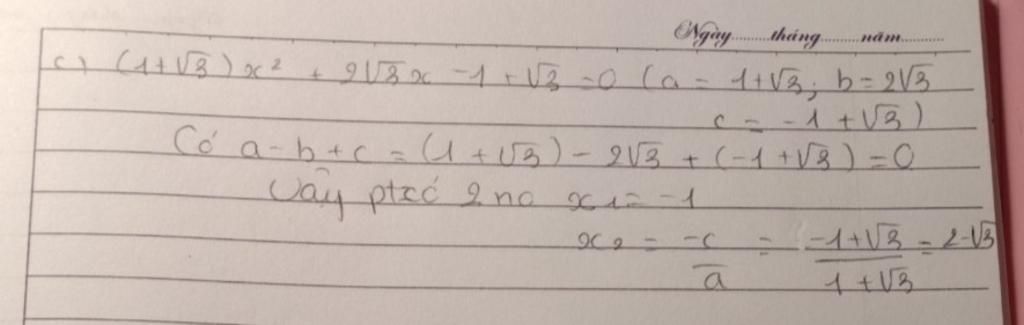 Ngày........tháng.........năm...........
c) (1+√3)x² + 2√3x -1 + √3 =0 (a = 1+√3; b=2√3
c = -1 + √3)
Có a-b+c = (1+√3) - 2√3 + (-1+√3) =0
Vậy ptcó 2 no x₁= -1
x₂ = -c/a = -1+√3/1+√3 = 2-√3